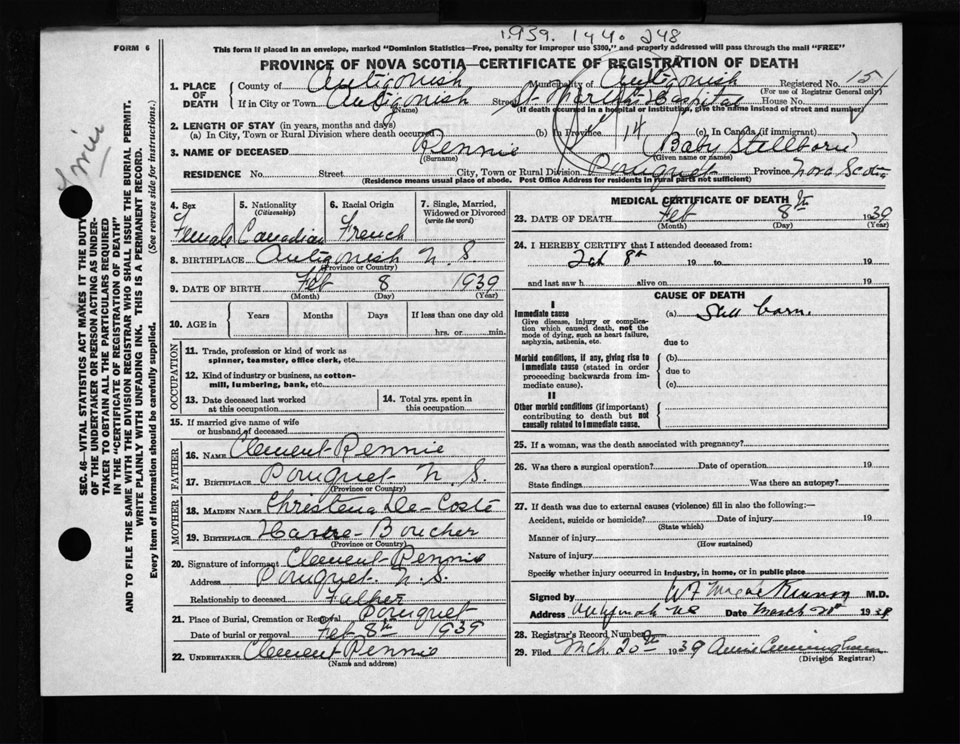 1939. 140. 248
FORM 6
This form if placed in an envelope, marked "Dominion Statistics—Free, penalty for improper use $300," and properly addressed will pass through the mail "FREE"
PROVINCE OF NOVA SCOTIA—CERTIFICATE OF REGISTRATION OF DEATH
1. PLACE OF DEATH
County of Antigonish Municipality of Antigonish Registered No. 51
(For use of Registrar General only)
If in City or Town Antigonish Street St. Martha's Hospital House No.
(Name) (If death occurred in a hospital or institution, give the name instead of street and number)
2. LENGTH OF STAY (in years, months and days)
(a) In City, Town or Rural Division where death occurred (b) In Province (c) In Canada (if immigrant)
14
3. NAME OF DECEASED Rennie Baby Stillborn
(Surname) (Given name or names)
RESIDENCE No. Street City, Town or Rural Division Pomquet Province Nova Scotia
(Residence means usual place of abode. Post Office Address for residents in rural parts not sufficient)
SEC. 46—VITAL STATISTICS ACT MAKES IT THE DUTY
OF THE UNDERTAKER OR PERSON ACTING AS UNDER-
TAKER TO OBTAIN ALL THE PARTICULARS REQUIRED
IN THE "CERTIFICATE OF REGISTRATION OF DEATH"
AND TO FILE THE SAME WITH THE DIVISION REGISTRAR WHO SHALL ISSUE THE BURIAL PERMIT.
WRITE PLAINLY WITH UNFADING INK. THIS IS A PERMANENT RECORD.
Every item of Information should be carefully supplied. (See reverse side for instructions.)
4. Sex
Female
5. Nationality
(Citizenship)
Canadian
6. Racial Origin
French
7. Single, Married,
Widowed or Divorced
(write the word)
8. BIRTHPLACE Antigonish N.S.
(Province or Country)
9. DATE OF BIRTH Feb 8 1939
(Month) (Day) (Year)
10. AGE in
Years Months Days If less than one day old
hrs. or min.
OCCUPATION
11. Trade, profession or kind of work as
spinner, teamster, office clerk, etc.
12. Kind of industry or business, as cotton-
mill, lumbering, bank, etc.
13. Date deceased last worked
at this occupation
14. Total yrs. spent in
this occupation
15. If married give name of wife
or husband of deceased
FATHER
16. NAME Clement Rennie
17. BIRTHPLACE Pomquet N.S.
(Province or Country)
MOTHER
18. MAIDEN NAME Christena De Coste
19. BIRTHPLACE Havre Boucher
(Province or Country)
20. Signature of informant Clement Rennie
Address Pomquet N.S.
Relationship to deceased Father
21. Place of Burial, Cremation or Removal Pomquet
Date of burial or removal Feb 8th 1939
22. UNDERTAKER Clement Rennie
(Name and address)
MEDICAL CERTIFICATE OF DEATH
23. DATE OF DEATH Feb 8th 1939
(Month) (Day) (Year)
24. I HEREBY CERTIFY that I attended deceased from:
Feb 8th 19 to 19
and last saw h alive on 19
CAUSE OF DEATH
I
Immediate cause
Give disease, injury or complica-
tion which caused death, not the
mode of dying, such as heart failure,
asphyxia, asthenia, etc.
(a) Still born.
due to
Morbid conditions, if any, giving rise to
Immediate cause (stated in order
proceeding backwards from im-
mediate cause).
(b)
due to
(c)
II
Other morbid conditions (if important)
contributing to death but not
causally related to Immediate cause.
25. If a woman, was the death associated with pregnancy?
26. Was there a surgical operation? Date of operation 19
State findings Was there an autopsy?
27. If death was due to external causes (violence) fill in also the following:—
Accident, suicide or homicide? Date of injury 19
(State which)
Manner of injury
(How sustained)
Nature of injury
Specify whether injury occurred in Industry, in home, or in public place
Signed by W F MacKinnon M.D.
Address Antigonish NS Date March 20th 1939
28. Registrar's Record Number
29. Filed Mch. 20th 1939 Annie Cunningham
(Division Registrar)